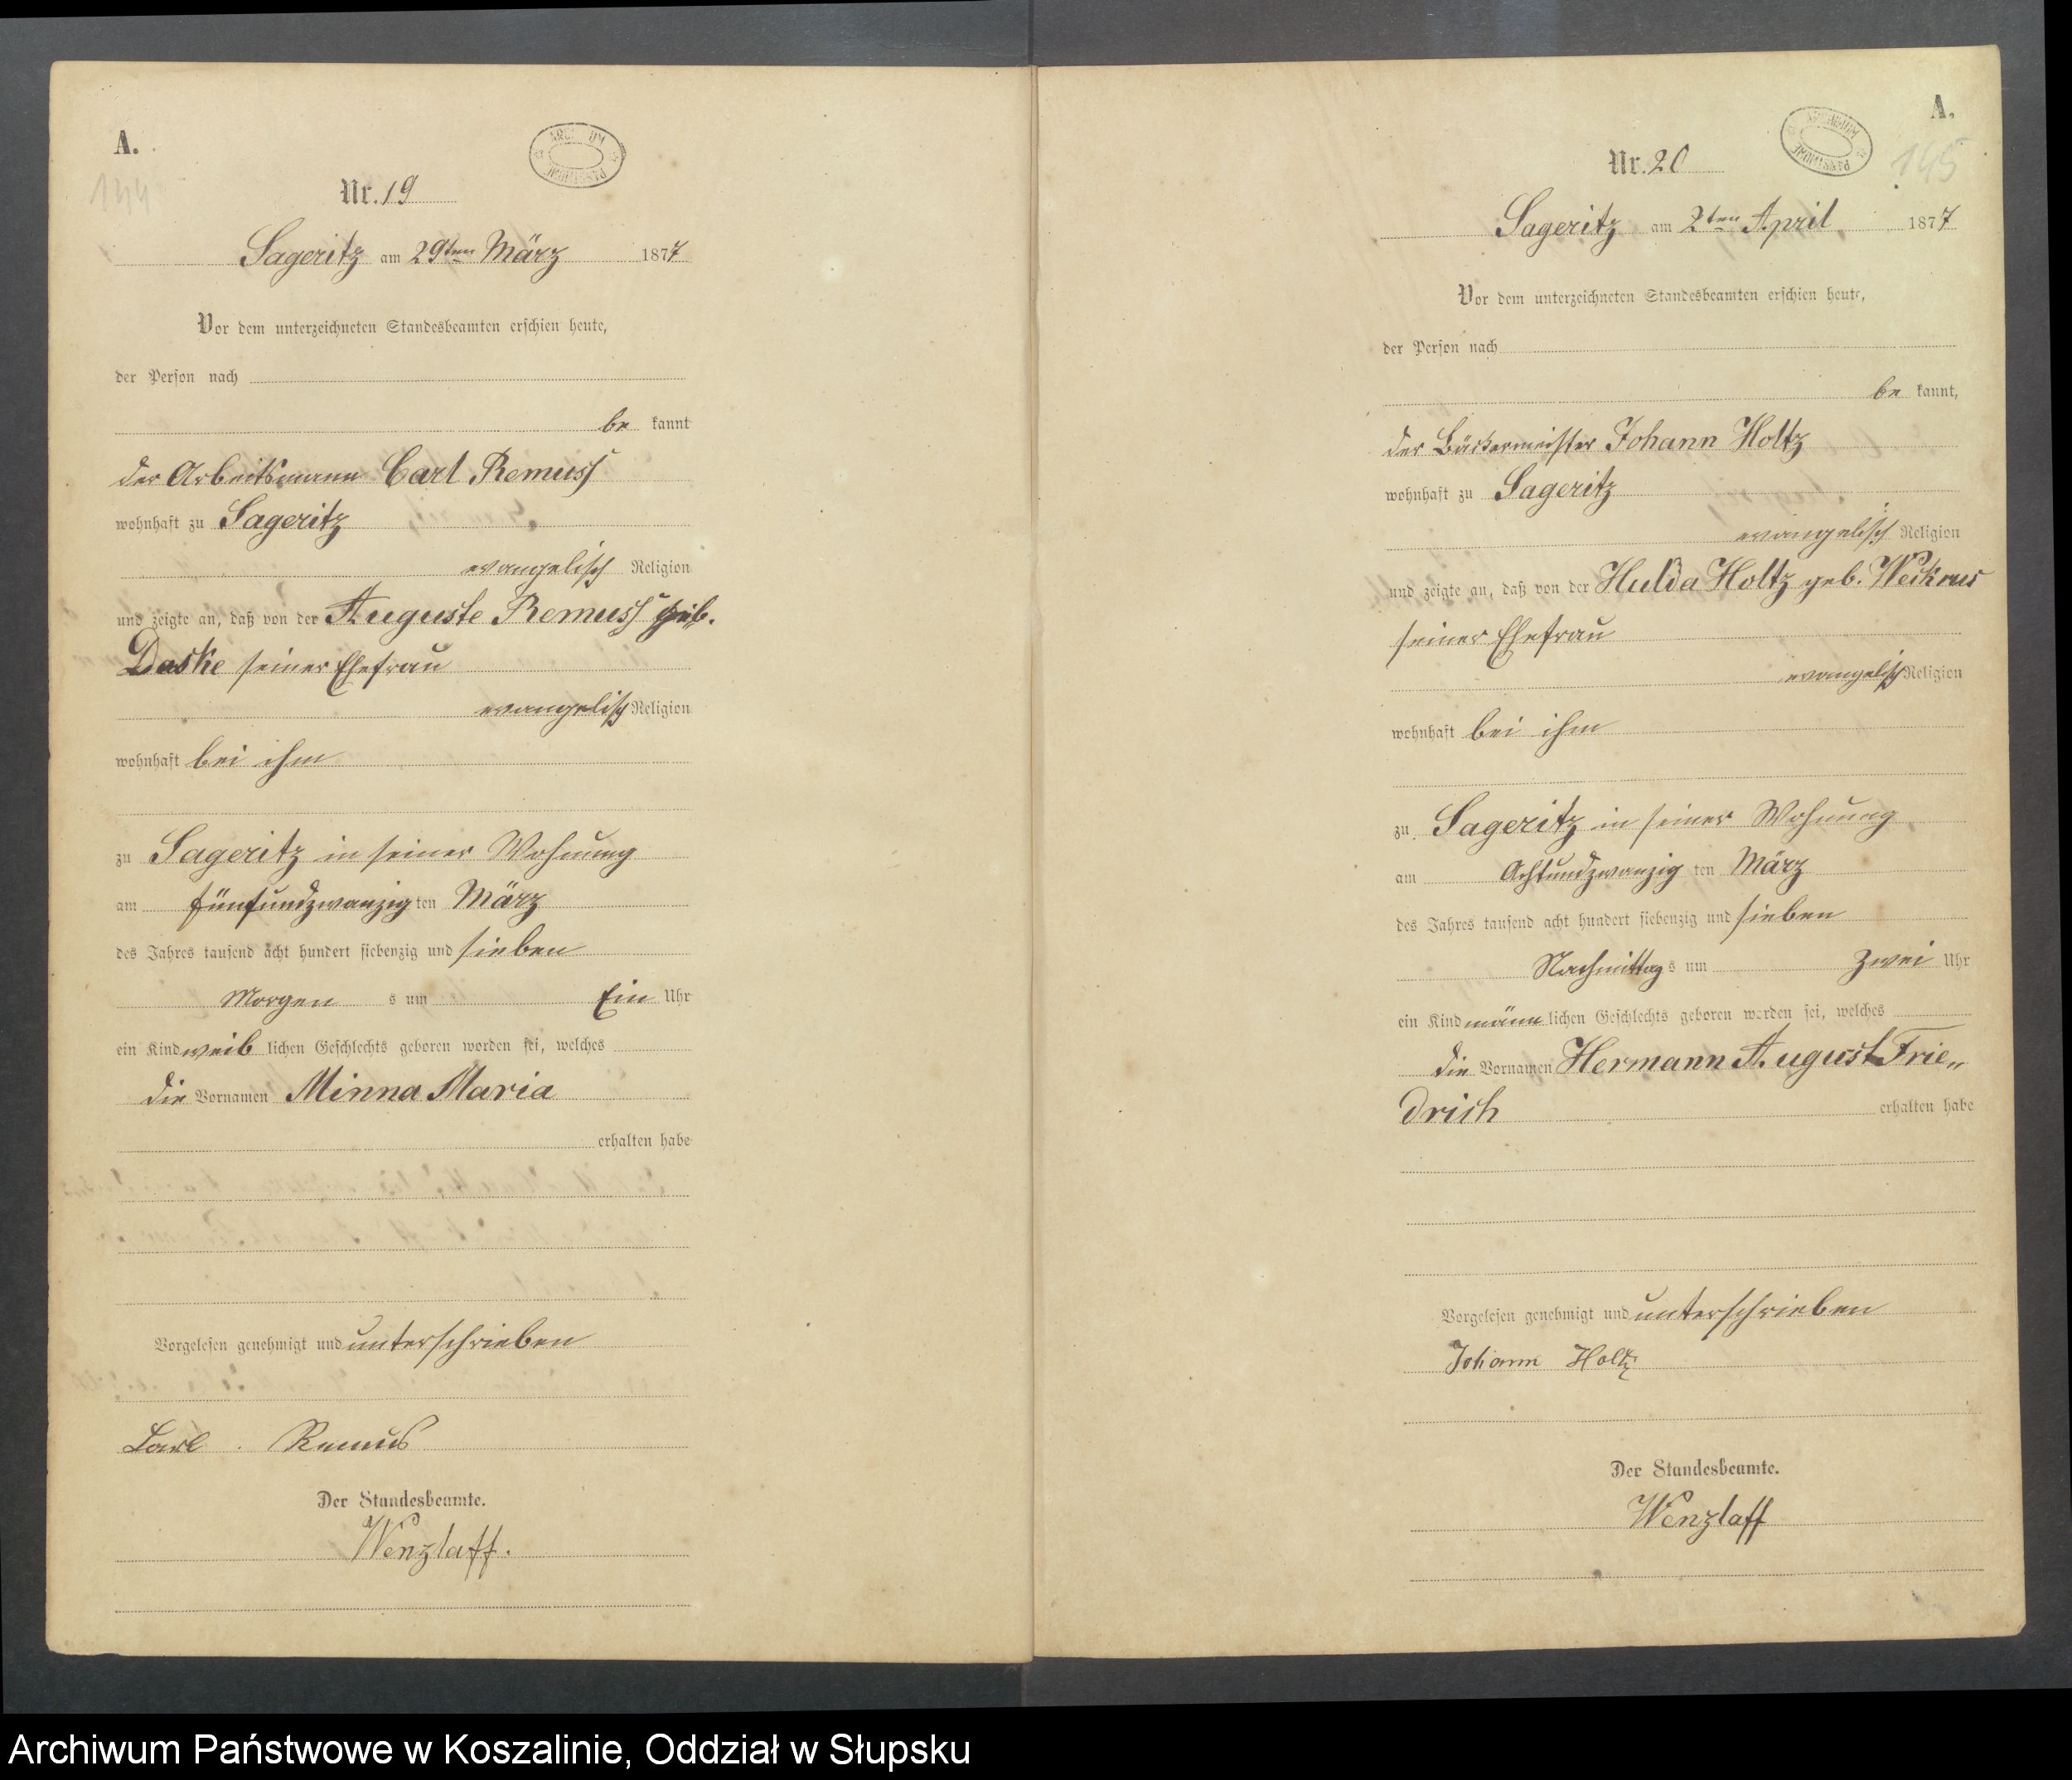 A.
144
ARCHIWUM PAŃSTWOWE
Nr. 19
Sageritz am 29ten März 1877
Vor dem unterzeichneten Standesbeamten erschien heute,
der Person nach
be kannt
der Arbeitsmann Carl Remuss
wohnhaft zu Sageritz
evangelisch Religion
und zeigte an, daß von der Auguste Remuss geb.
Daske seiner Ehefrau
evangelisch Religion
wohnhaft bei ihm
zu Sageritz in seiner Wohnung
am fünfundzwanzig ten März
des Jahres tausend acht hundert siebenzig und sieben
Morgen s um Ein Uhr
ein Kind weib lichen Geschlechts geboren worden sei, welches
die Vornamen Minna Maria
erhalten habe
Vorgelesen genehmigt und unterschrieben
Carl Remus
Der Standesbeamte.
Wenzlaff.
A.
145
ARCHIWUM PAŃSTWOWE
Nr. 20
Sageritz am 2ten April 1877
Vor dem unterzeichneten Standesbeamten erschien heute,
der Person nach
be kannt,
der Bäckermeister Johann Holtz
wohnhaft zu Sageritz
evangelisch Religion
und zeigte an, daß von der Hulda Holtz geb.
seiner Ehefrau
evangelisch Religion
wohnhaft bei ihm
zu Sageritz in seiner Wohnung
am Achtundzwanzig ten März
des Jahres tausend acht hundert siebenzig und sieben
Nachmittag s um Zwei Uhr
ein Kind männ lichen Geschlechts geboren worden sei, welches
die Vornamen Hermann August Frie„
drich erhalten habe
Vorgelesen genehmigt und unterschrieben
Johann Holtz
Der Standesbeamte.
Wenzlaff
Archiwum Państwowe w Koszalinie, Oddział w Słupsku